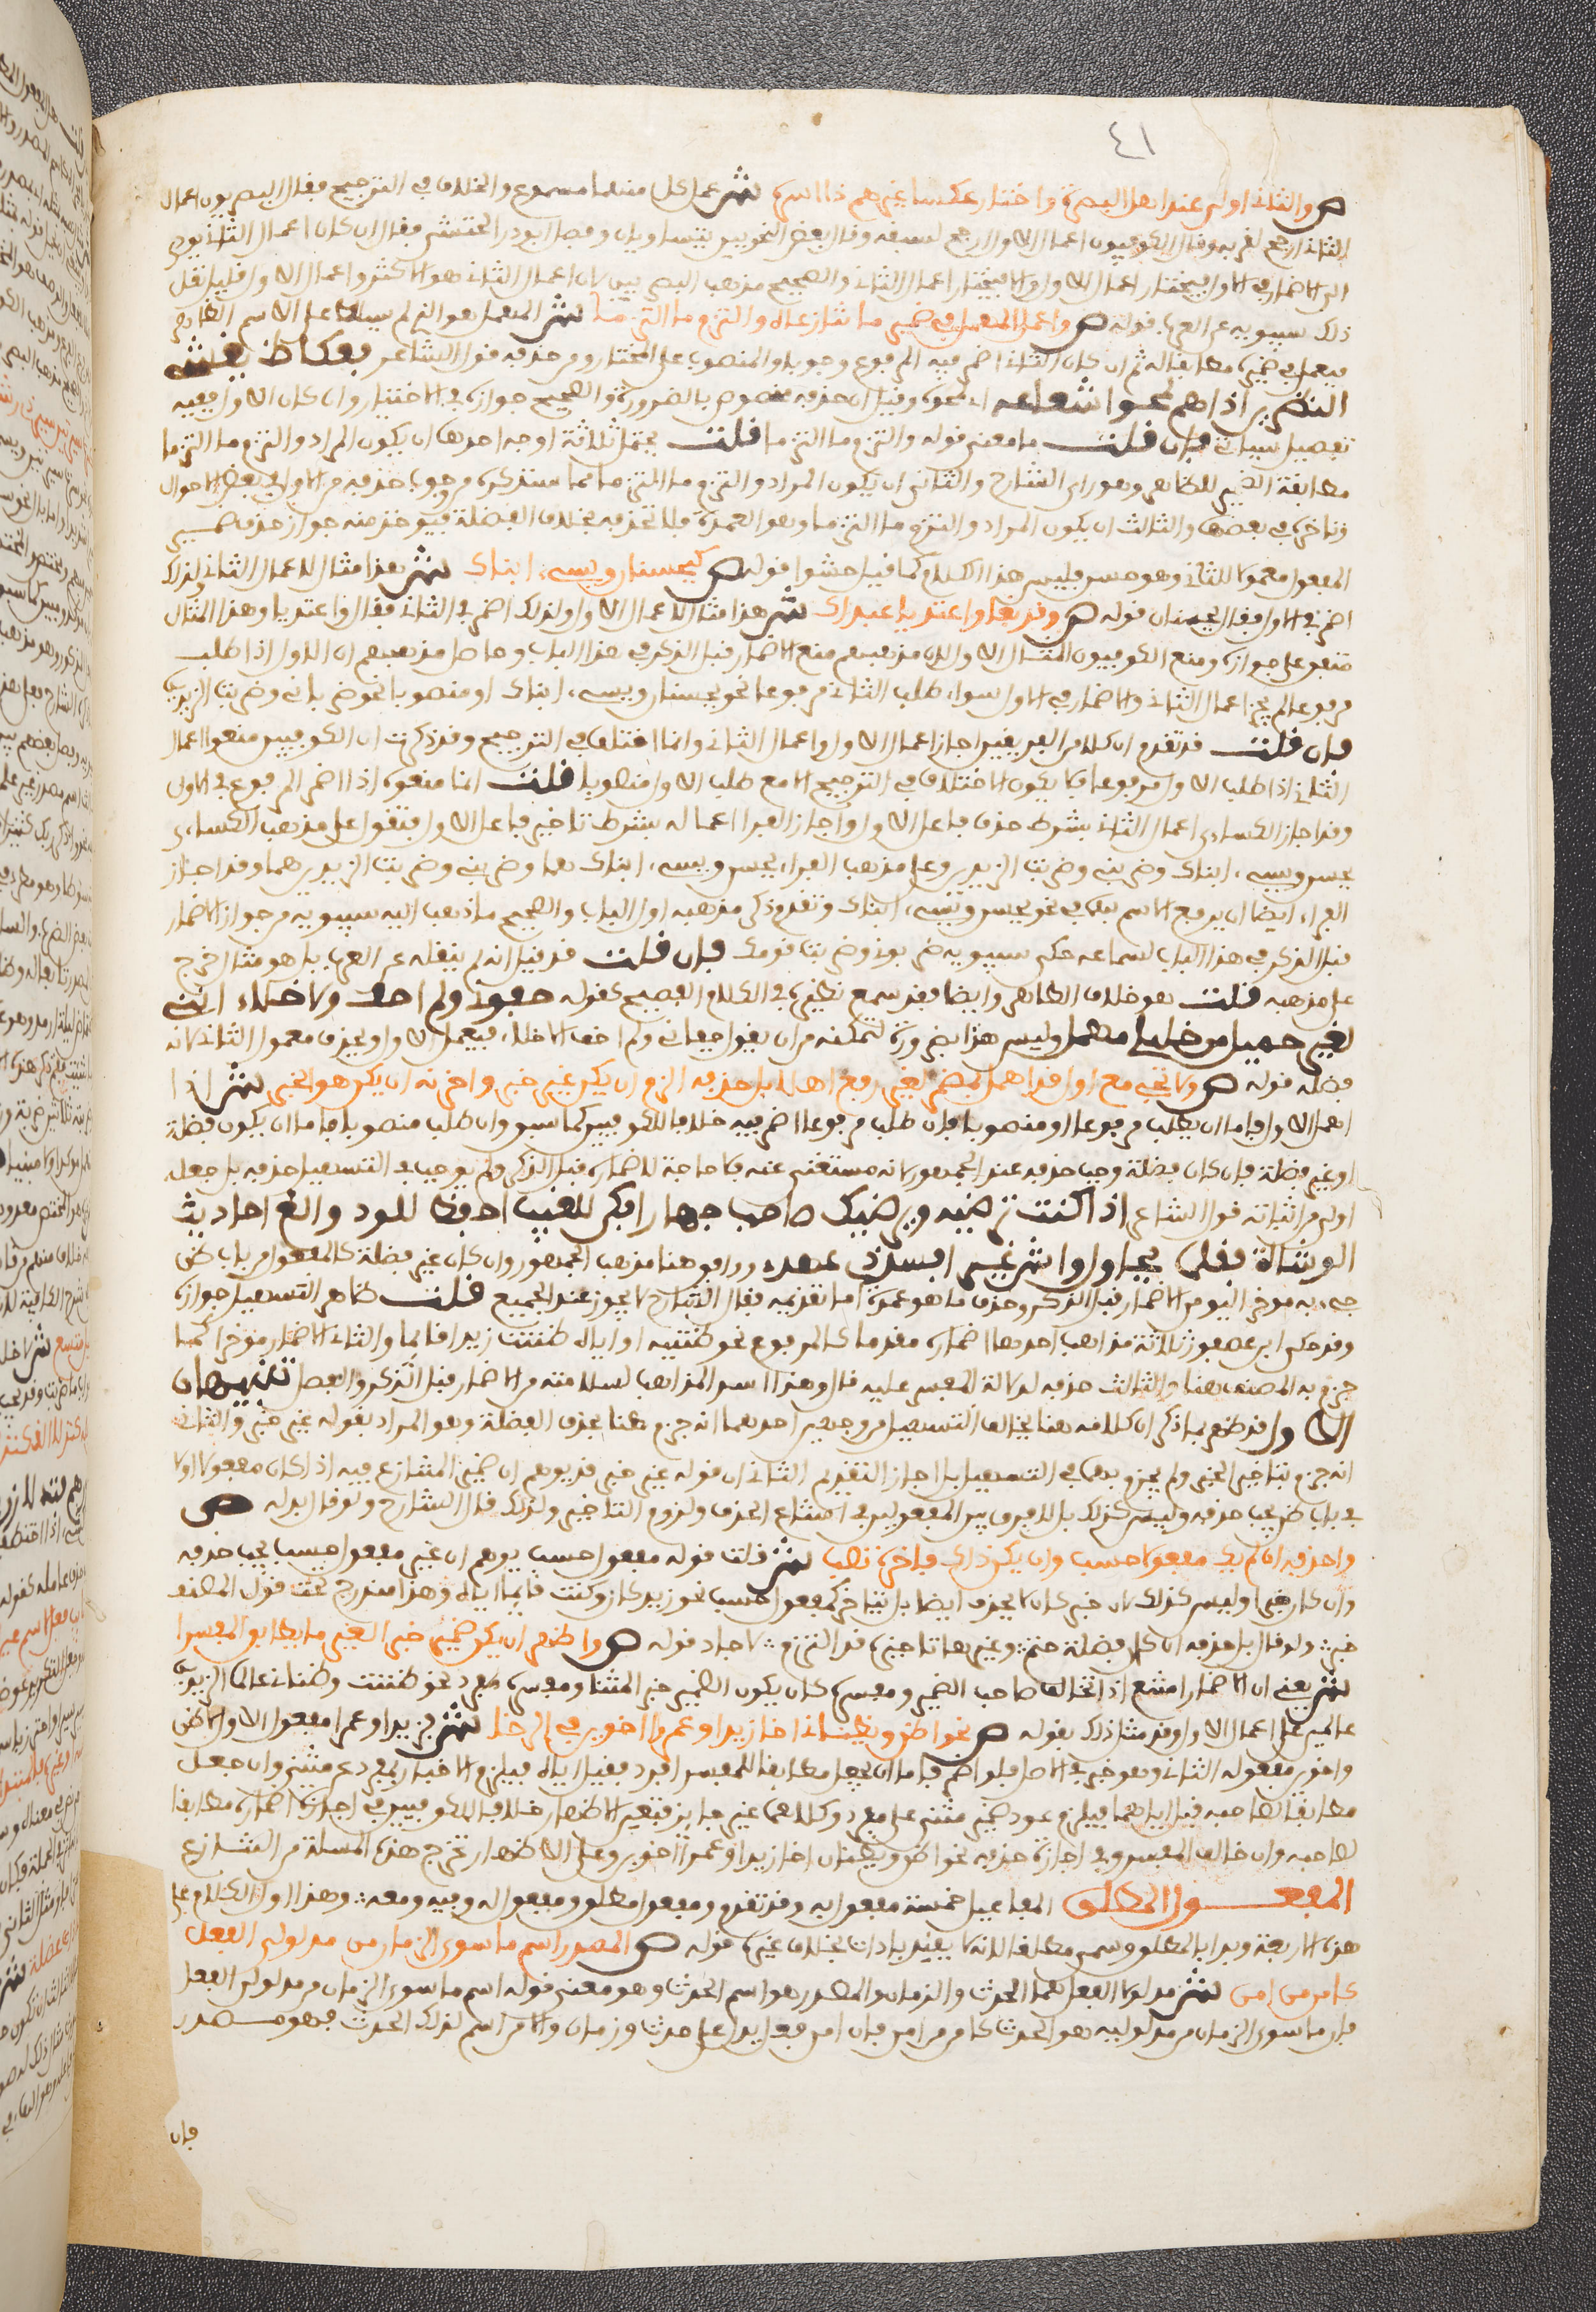 ٤١
ص والثان اولى عند اهل البصرة واختار عكسا غيرهم ذا اسرة ش عمل كل منهما مسموع والخلاف في الترجيح فقال البصريون اعمال
الثاني ارجح لقربه وقال الكوفيون اعمال الاول ارجح لسبقه وقال بعض النحويين يتساويان وفصل ابو ذر الخشني فقال ان كان اعمال الثاني يودي
الى الاضمار في الاول فيختار اعمال الاول والا فيختار اعمال الثاني والصحيح مذهب البصريين لان اعمال الثاني هو الاكثر واعمال الاول قليل نقل
ذلك سيبويه عن العرب قوله ص واعمل المهمل في ضمير ما تنازعاه والتزم ما التزما ش المهمل هو الذي لم يسلط على الاسم الظاهر
فيعمل في ضميره مطابقا له ثم ان كان الثاني اضمر فيه المرفوع وجوبا والمنصوب على المختار ومن حذفه قول الشاعر بعكاظ يعشي
الناظرين اذا هم لمحوا شعاعه اي لمحوه وقيل ان حذفه مخصوص بالضرورة والصحيح جوازه في الاختيار وان كان الاول ففيه
تفصيل سياتي فان قلت ما معنى قوله والتزم ما التزما قلت يحتمل ثلاثة اوجه احدها ان يكون المراد والتزم ما التزما
مطابقة الضمير للظاهر وهو راي الشارح والثاني ان يكون المراد والتزم ما التزما مما سنذكره من وجوب حذفه من الاول في بعض الاحوال
وتاخيره في بعضها والثالث ان يكون المراد والتزم ما التزما وهو العمدة فلا تحذفه بخلاف الفضلة فيوخذ منه جواز حذف ضمير
المفعول معمولا للثاني وهو حسن فليس هذا الكلام كما قيل حشوا قوله ص كيحسنان ويسيء ابناك ش هذا مثال لاعمال الثاني ولذلك
اضمر في الاول فقال يحسنان قوله ص وقد بغا واعتديا عبداك ش هذا مثال لاعمال الاول ولذلك اضمر في الثاني فقال واعتديا وهذا المثال
متفق على جوازه ومنع الكوفيون المثال الاول لان مذهبهم منع الاضمار قبل الذكر في هذا الباب وحاصل مذهبهم ان الاول اذا طلب
مرفوعا لم يجز اعمال الثاني والاضمار في الاول سواء طلب الثاني مرفوعا نحو يحسنان ويسيء ابناك او منصوبا نحو ضرباني وضربت الزيدين
فان قلت قد تقدم ان كلا من الفريقين اجاز اعمال الاول واعمال الثاني وانما اختلف في الترجيح وقد ذكرت ان الكوفيين منعوا اعمال
الثاني اذا طلب الاول مرفوعا فلا يكون الاختلاف في الترجيح الا مع طلب الاول منصوبا قلت انما منعوه اذا اضمر المرفوع في الاول
وقد اجاز الكسائي اعمال الثاني بشرط حذف فاعل الاول واجاز الفراء اعماله بشرط تاخير فاعل الاول فتقول على مذهب الكسائي
يحسن ويسيء ابناك وضربني وضربت الزيدين وعلى مذهب الفراء يحسن ويسيء ابناك هما وضربني وضربت الزيدين هما وقد اجاز
الفراء ايضا ان يرفع الاسم بهما في نحو يحسن ويسيء ابناك وتقدم ذكر مذهبه اول الباب والصحيح ما ذهب اليه سيبويه من جواز الاضمار
قبل الذكر في هذا الباب لسماعه حكى سيبويه ضربوني وضربت قومك فان قلت قد قيل انه لم ينقله عن العرب بل هو مثال خرج
على مذهبه قلت هو خلاف الظاهر وايضا فقد سمع نظيره في الكلام الفصيح كقوله جفوني ولم اجف الاخلاء انني
لغير جميل من خليلي مهمل وليس هذا بضرورة لتمكنه من ان يقول جفاني ولم اجف الاخلاء فيعمل الاول ويحذف معمول الثاني لانه
فضلة قوله ص ولا تجئ مع اول قد اهملا بمضمر لغير رفع اوهلا بل حذفه الزم ان يكن غير خبر واخرنه ان يكن هو الخبر ش اذا
اهمل الاول فاما ان يطلب مرفوعا او منصوبا فان طلب مرفوعا اضمر فيه خلافا للكوفيين كما سبق وان طلب منصوبا فاما ان يكون فضلة
او غير فضلة فان كان فضلة وجب حذفه عند الجمهور لانه مستغنى عنه فلا حاجة لاضماره قبل الذكر ولم يوجب في التسهيل حذفه بل جعله
اولى من اثباته قول الشاعر اذا كنت ترضيه ويرضيك صاحب جهارا فكن للغيب احفظ للود والغ احاديث
الوشاة فقلما يحاول واش غير افساد ذي عهد ووافق هنا مذهب الجمهور وان كان غير فضلة كالمفعول من باب ظن
جيء به موخرا ليومن الاضمار قبل الذكر وحذف ما هو عمدة اما تقديمه فقال الشارح لا يجوز عند الجميع قلت ظاهر التسهيل جوازه
وقد حكى ابن عصفور ثلاثة مذاهب احدها اضماره مقدما كالمرفوع نحو ظننته او اياه ظننت زيدا قائما والثاني الاضمار موخرا كما
جزم به المصنف هنا والثالث حذفه لدلالة المفسر عليه قال وهذا اسد المذاهب لسلامته من الاضمار قبل الذكر والفصل تنبيهان
الاول قد ظهر بما ذكر ان كلامه هنا يخالف التسهيل من وجهين احدهما انه جزم هنا بحذف الفضلة وهو المراد بقوله غير خبر والثاني
انه جزم بتاخير الخبر ولم يجزم به في التسهيل بل اجاز التقديم الثاني ان قوله غير خبر قد يوهم ان ضمير المتنازع فيه اذا كان مفعولا اولا
في باب ظن يجب حذفه وليس كذلك بل لا فرق بين المفعولين في امتناع الحذف ولزوم التاخير ولذلك قال الشارح ولو قال بدله ص
واحذفه ان لم يك مفعول حسب وان يكن ذاك فاخره تصب ش قلت قوله مفعول حسب يوهم ان غير مفعول حسب يجب حذفه
وان كان خبرا وليس كذلك لان خبر كان لا يحذف ايضا بل يتاخر كمفعول حسب نحو زيد كان وكنت قائما اياه وهذا مندرج تحت قول المصنف
خبر ولو قال بل حذفه ان كان فضلة حتم وغيرها تاخيره قد التزم لاجاد قوله ص واظهر ان يكن ضمير خبرا لغير ما يطابق المفسرا
ش يعني ان الاضمار امتنع اذا تخالف صاحب الضمير ومفسره كان يكون الضمير خبرا لمثنى ومفسره مفرد نحو ظننت وظناني عالما الزيدين
عالمين على اعمال الاول وقد مثل ذلك بقوله ص نحو اظن ويظناني اخا زيدا وعمرا اخوين في الرخا ش فزيدا وعمرا مفعول اول لاظن
واخوين مفعوله الثاني وهو خبر في الاصل فلو اضمر فاما ان يجعل مطابقا للمفسر افرد فقيل اياه فيلزم الاخبار بمفرد عن مثنى وان جعل
مطابقا لصاحبه قيل اياهما فيلزم عود ضمير مثنى على مفرد وكلاهما غير جايز فتعين الاظهار خلافا للكوفيين في اجازة اضماره مطابقا
لصاحبه وان خالف المفسر وفي اجازة حذفه نحو اظن ويظنان اخا زيدا وعمرا اخوين وعلى الاظهار تخرج هذه المسئلة من التنازع
المفعول المطلق المفاعيل خمسة مفعول به وقد تقدم ومفعول مطلق ومفعول له وفيه ومعه وهذا اول الكلام على
هذه الاربعة وبدا بالمطلق وسمي مطلقا لانه لا يقيد باداة بخلاف غيره قوله ص المصدر اسم ما سوى الزمان من مدلولي الفعل
كامن من امن ش مدلولا الفعل هما الحدث والزمان والمصدر هو اسم الحدث وهو معنى قوله اسم ما سوى الزمان من مدلولي الفعل
فان ما سوى الزمان من مدلوليه هو الحدث كامن من امن فان امن فعل يدل على حدث وزمان والامن اسم لذلك الحدث فهو مصدر
فان